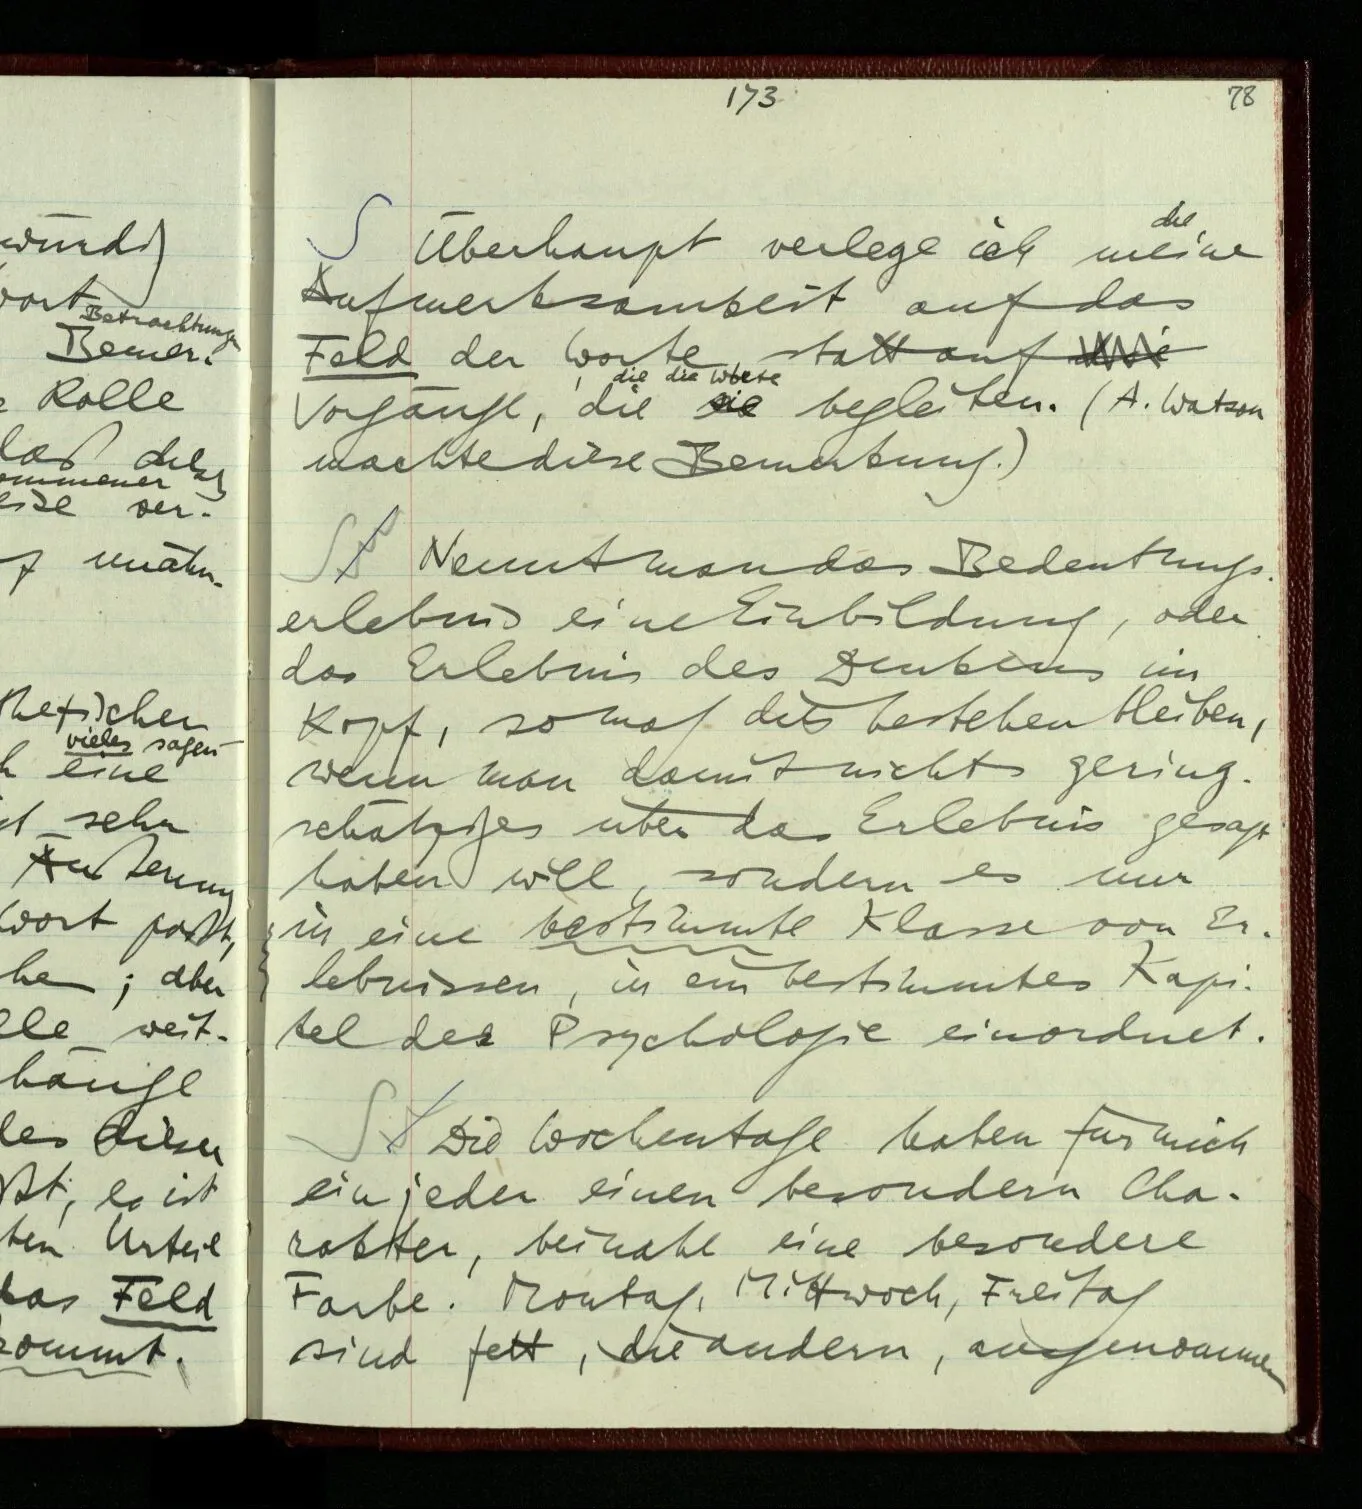 würdig
wort
Betrachtung
Bemer-
Rolle
daß
kommener
eise ver-
f unähn-
thetischen
vieles sagen
h eine
ist sehr
Äußerung
Wort paßt,
he; aber
lle weit-
hänge
les dieser
ßt; es ist
ten Urteil
das Feld
kommt.
173
78
S Überhaupt verlege ich meine
die
Aufmerksamkeit auf das
Feld der Worte, statt auf die
die die Worte
Vorgänge, die sie begleiten. (A. Watson
machte diese Bemerkung.)
S Nennt man das Bedeutungs-
erlebnis eine Einbildung, oder
das Erlebnis des Denkens im
Kopf, so mag dies bestehen bleiben,
wenn man damit nichts gering-
schätziges über das Erlebnis gesagt
haben will, sondern es nur
in eine bestimmte Klasse von Er-
lebnissen, in ein bestimmtes Kapi-
tel der Psychologie einordnet.
S Die Wochentage haben für mich
ein jeder einen besondern Cha-
rakter, beinahe eine besondere
Farbe. Montag, Mittwoch, Freitag
sind fett, die andern, ausgenommen